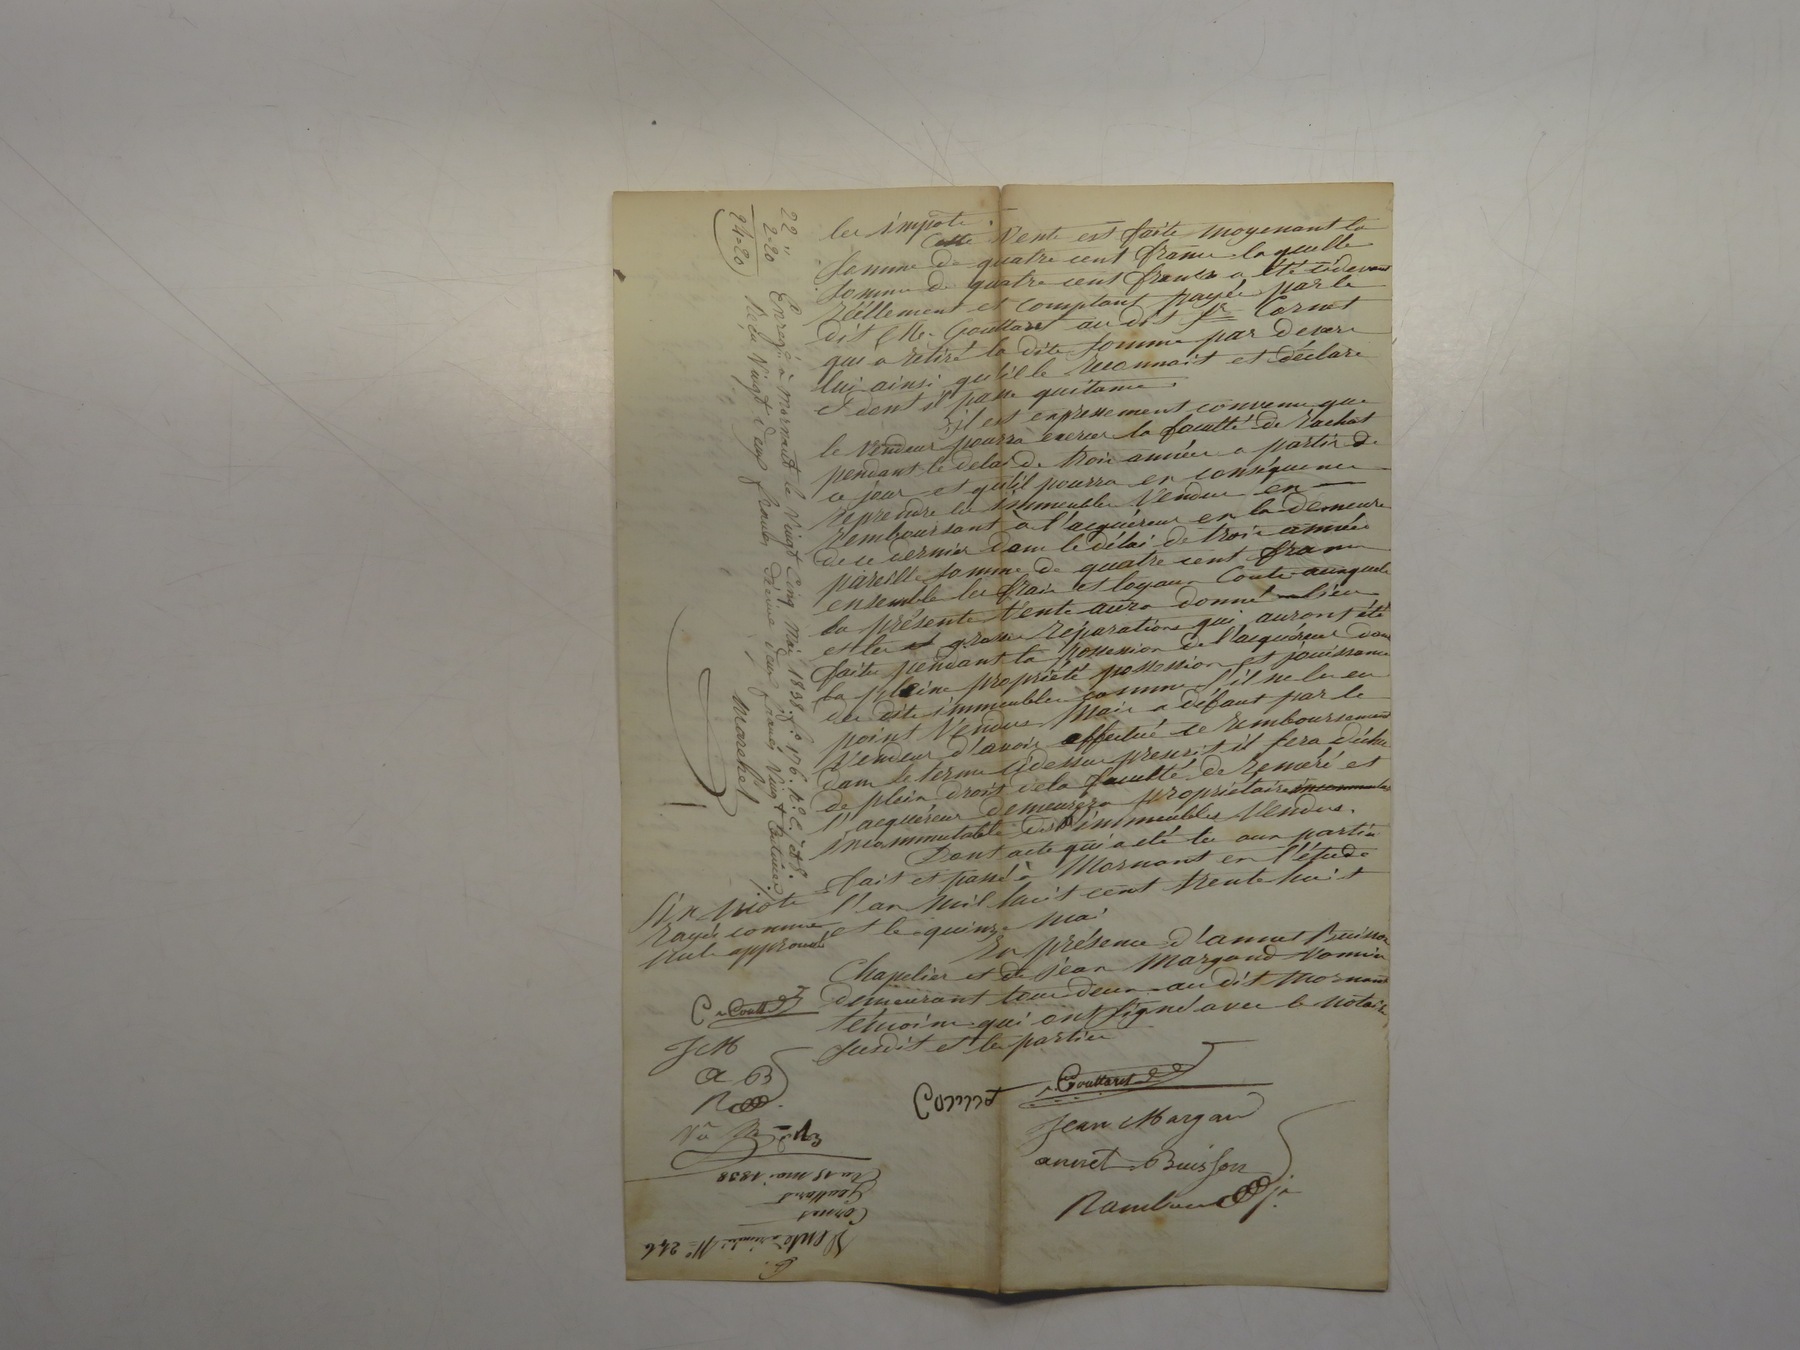 les impots.
Cette Vente est faite moyenant la
somme de quatre cent francs laquelle
somme de quatre cent francs a été cidevant
réellement et comptant payée par le
dit Me. Gouttard au dit Sr. Cornet
qui a retiré la dite somme par devers
lui ainsi qu'il le reconnait et déclare
et dont il passe quitance.
il est expressement convenu que
le vendeur pourra exercer la faculté de rachat
pendant le delai de trois années a partir de
ce jour et qu'il pourra en conséquence
reprendre les immeubles Vendus en
remboursant à l'acquéreur en la demeure
de ce dernier dans le délai de trois années
pareille somme de quatre cent francs
ensemble les frais et loyaux Couts auxquels
la présente Vente aura donné lieu
et les grosses réparations qui auront été
faites pendant la possession de l'acquéreur dans
la pleine propriété possession et jouissance
des dits immeubles comme s'il ne les eu
point Vendus Mais a défaut par le
Vendeur d'avoir effectué ce remboursement
dans le terme cidessus prescrit il sera déchu
de plein droit de la faculté de réméré et
l'acquéreur demeurera propriétaire
incommutable des immeubles Vendus.
Dont acte qui a été lu aux parties
Fait et passé à Mornant en l'étude
l'an Mil huit cent trente huit
et le quinze mai
En présence d'annet Buisson
Chapelier et de Jean Margand
demeurant tous deux au dit Mornant
témoins qui ont signé avec le notaire
susdit et les parties
Gouttard
Cornet
Jean Margand
annet Buisson
Six mots
rayés comme
nuls approuvés
J M
a B
R
22 "
2-20
24-20
Enregé. à Mornant le Vingt Cinq Mai 1838 fo. 176. Ro. C.
Reçu Vingt deux francs décime deux francs Vingt Centimes
Marchet
Vente à réméré No 246
Cornet
Gouttard
Du 15 mai 1838